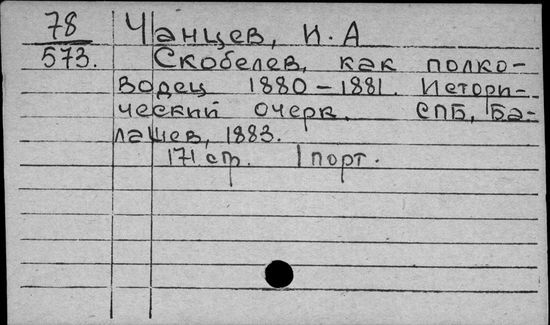 78 Чанцев, И. А
573. Скобелев, как полко-
водец 1880-1881. Истори-
ческий очерк. СПБ, Ба-
лашев, 1883.
171 стр. 1 порт.